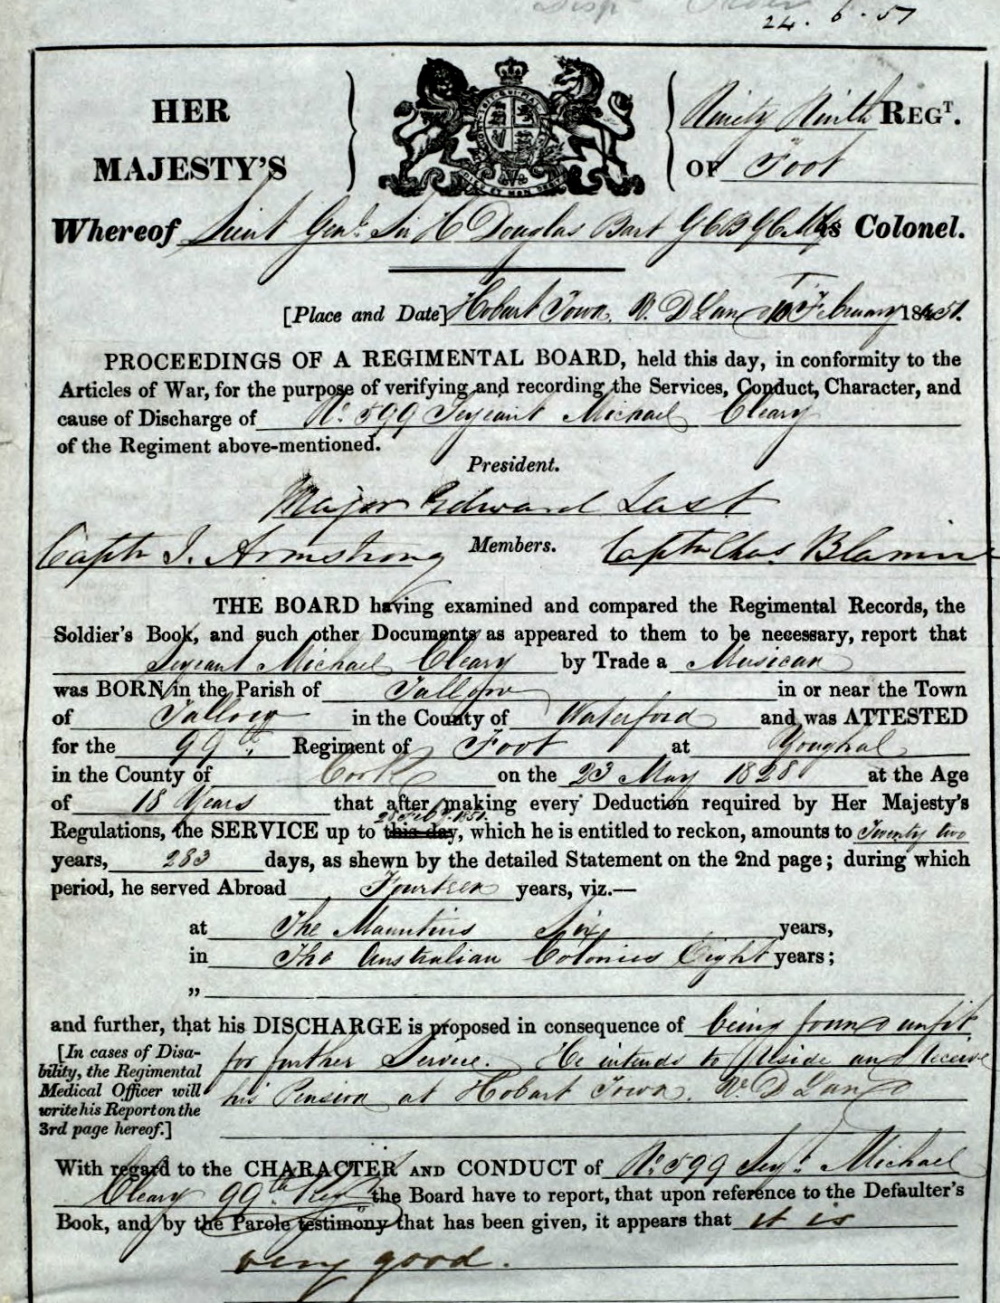 24. 6. 51
HER
MAJESTY'S
Ninety Ninth REGT.
OF Foot
Whereof Lieut Genl. Sir H Douglas Bart GCB GCMG is Colonel.
[Place and Date] Hobart Town V. D Land 10 February 1851.
PROCEEDINGS OF A REGIMENTAL BOARD, held this day, in conformity to the
Articles of War, for the purpose of verifying and recording the Services, Conduct, Character, and
cause of Discharge of No. 599 Serjeant Michael Cleary
of the Regiment above-mentioned.
President.
Major Edward Last
Captn J. Armstrong Members. Captn Chas. Blamire
THE BOARD having examined and compared the Regimental Records, the
Soldier's Book, and such other Documents as appeared to them to be necessary, report that
Serjeant Michael Cleary by Trade a Musican
was BORN in the Parish of Tallow in or near the Town
of Tallow in the County of Waterford and was ATTESTED
for the 99th Regiment of Foot at Youghal
in the County of Cork on the 23 May 1828 at the Age
of 18 Years that after making every Deduction required by Her Majesty's
28 Feby. 1851.
Regulations, the SERVICE up to this day, which he is entitled to reckon, amounts to Twenty two
years, 283 days, as shewn by the detailed Statement on the 2nd page; during which
period, he served Abroad Fourteen years, viz.—
at The Mauritius Six years,
in The Australian Colonies Eight years;
„
and further, that his DISCHARGE is proposed in consequence of being found unfit
for further Service. He intends to Reside and Receive
his Pension at Hobart Town. V. D Land
[In cases of Disa-
bility, the Regimental
Medical Officer will
write his Report on the
3rd page hereof.]
With regard to the CHARACTER AND CONDUCT of No. 599 Serjt. Michael
Cleary 99th Regt the Board have to report, that upon reference to the Defaulter's
Book, and by the Parole testimony that has been given, it appears that it is
very good.